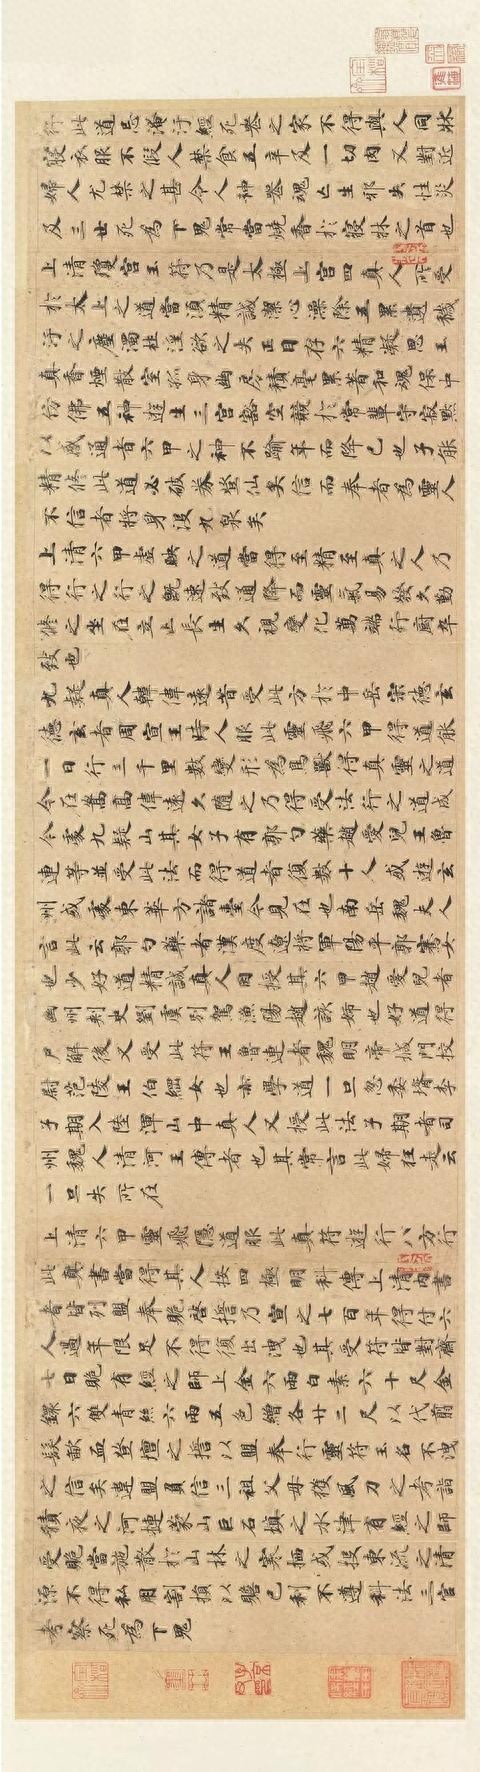 行此道忌淹汙經死喪之家不得與人同牀
寢衣服不假人禁食五辛及一切肉又對近
婦人尤禁之甚令人神喪魂亡生邪失性災
及三世死為下鬼常當燒香於寢牀之首也
上清瓊宮玉符乃是太極上宮四真人所受
於太上之道當須精誠潔心澡除五累遺穢
汙之塵濁杜淫欲之失正目存六精凝思玉
真香煙散室孤身幽房積毫累著和魂保中
仿佛五神遊生三宮豁空競於常輩守寂默
以感通者六甲之神不踰年而降已也子能
精修此道必破券登仙矣信而奉者為靈人
不信者將身沒九泉矣
上清六甲虛映之道當得至精至真之人乃
得行之行之既速致通降而靈氣易發久勤
修之坐在立亡長生久視變化萬端行廚卒
致也
九疑真人韓偉遠昔受此方於中岳宋德玄
德玄者周宣王時人服此靈飛六甲得道能
一日行三千里數變形為鳥獸得真靈之道
今在嵩高偉遠久隨之乃得受法行之道成
今處九疑山其女子有郭勺藥趙愛兒王魯
連等並受此法而得道者復數十人或遊玄
州或處東華方諸臺今見在也南岳魏夫人
言此云郭勺藥者漢度遼將軍陽平郭騫女
也少好道精誠真人因授其六甲趙愛兒者
幽州刺史劉虞別駕漁陽趙該姊也好道得
尸解後又受此符王魯連者魏明帝城門校
尉范陵王伯綱女也亦學道一旦忽委壻李
子期入陸渾山中真人又授此法子期者司
州魏人清河王傳者也其常言此婦狂走云
一旦失所在
上清六甲靈飛隱道服此真符遊行八方行
此真書當得其人按四極明科傳上清內書
者皆列盟奉跪啓誓乃宣之七百年得付六
人過年限足不得復出洩也其受符皆對齋
七日跪有經之師上金六兩白素六十尺金
鐶六雙青絲六兩五色繒各廿二尺以代翦
髮歃血登壇之誓以盟奉行靈符玉名不洩
之信矣違盟負信三祖父母獲風刀之考詣
積夜之河揵蒙山巨石填之水津有經之師
受貺當施散於山林之寒棲或投東流之清
源不得私用割損以贍己利不遵科法三官
考察死為下鬼